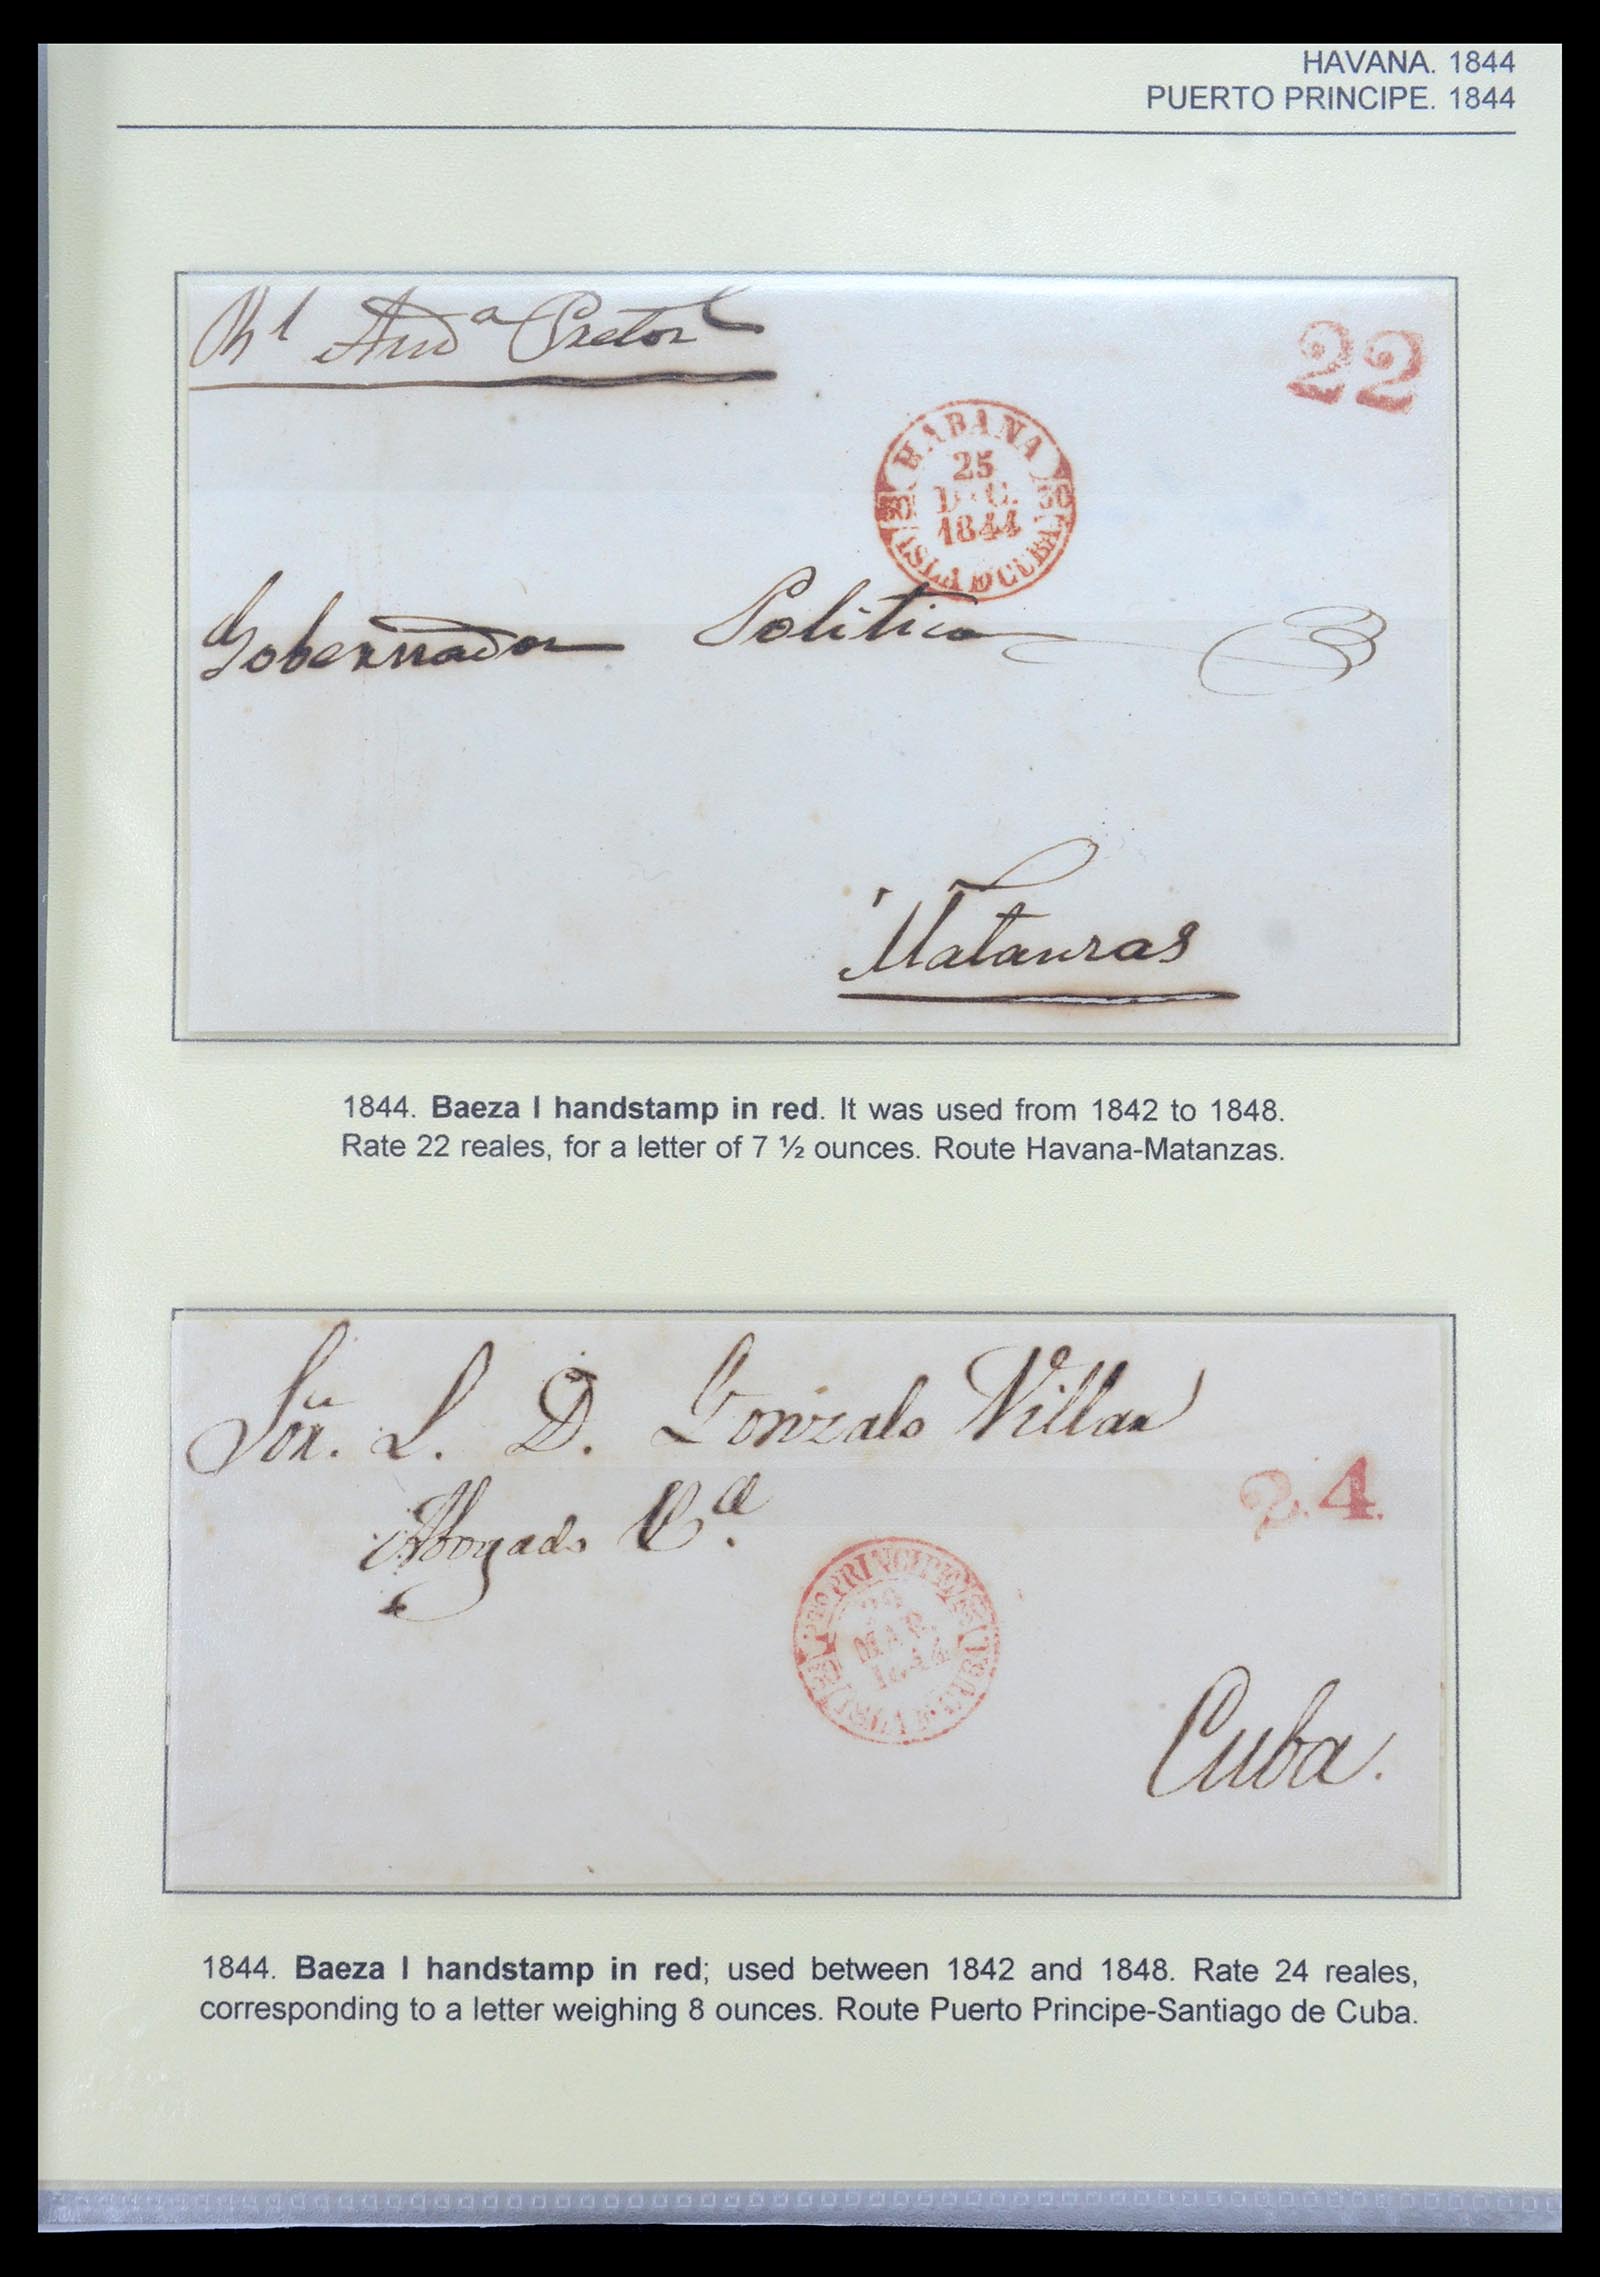 HAVANA. 1844
PUERTO PRINCIPE. 1844
Rl Auda Pretorl
22
HABANA
25
1844
ISLA DE CUBA
Gobernador Politico
Matanzas
1844. Baeza I handstamp in red. It was used from 1842 to 1848.
Rate 22 reales, for a letter of 7 ½ ounces. Route Havana-Matanzas.
Sor. L. D. Gonzalo Villar
24
Abogado
PTO PRINCIPE
MAR.
1844
Cuba.
1844. Baeza I handstamp in red; used between 1842 and 1848. Rate 24 reales,
corresponding to a letter weighing 8 ounces. Route Puerto Principe-Santiago de Cuba.